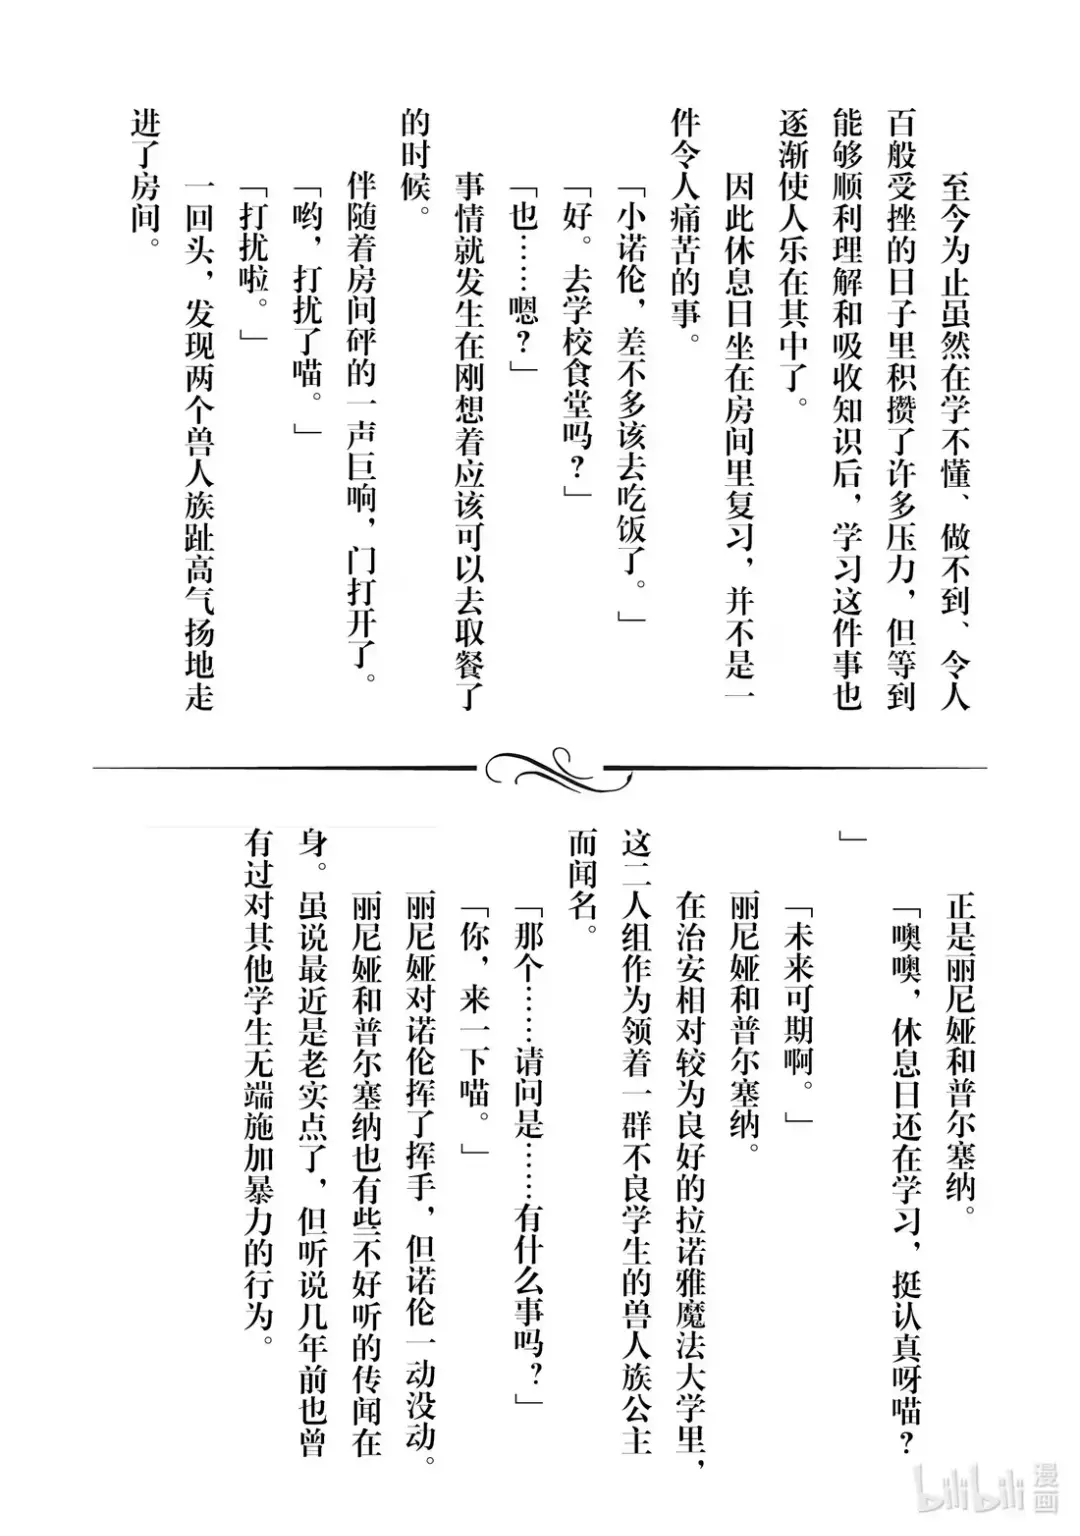 至今为止虽然在学不懂、做不到、令人
百般受挫的日子里积攒了许多压力，但等到
能够顺利理解和吸收知识后，学习这件事也
逐渐使人乐在其中了。
因此休息日坐在房间里复习，并不是一
件令人痛苦的事。
「小诺伦，差不多该去吃饭了。」
「好。去学校食堂吗？」
「也……嗯？」
事情就发生在刚想着应该可以去取餐了
的时候。
伴随着房间砰的一声巨响，门打开了。
「哟，打扰了喵。」
「打扰啦。」
一回头，发现两个兽人族趾高气扬地走
进了房间。
正是丽尼娅和普尔塞纳。
「噢噢，休息日还在学习，挺认真呀喵？
」
「未来可期啊。」
丽尼娅和普尔塞纳。
在治安相对较为良好的拉诺雅魔法大学里，
这二人组作为领着一群不良学生的兽人族公主
而闻名。
「那个……请问是……有什么事吗？」
「你，来一下喵。」
丽尼娅对诺伦挥了挥手，但诺伦一动没动。
丽尼娅和普尔塞纳也有些不好听的传闻在
身。虽说最近是老实点了，但听说几年前也曾
有过对其他学生无端施加暴力的行为。
bilibili 漫画